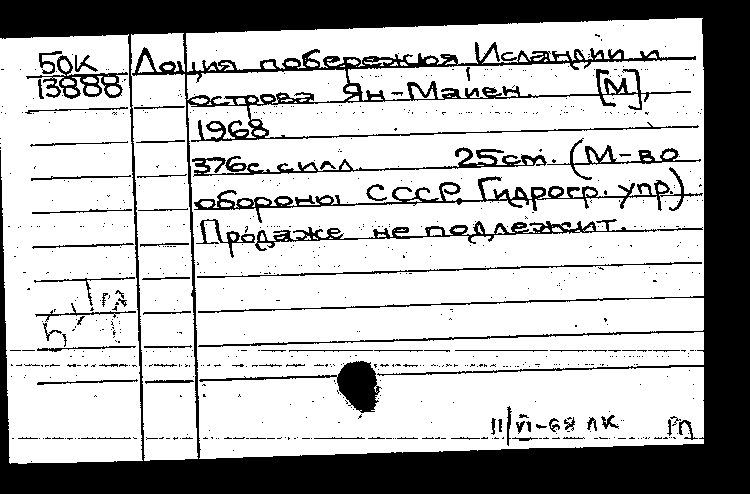 50К Лоция побережья Исландии и
13888 острова Ян-Майен. [М],
1968.
376с. с илл. 25см. (М-во
обороны СССР, Гидрогр. упр.)
Продаже не подлежит.
11/VI-68 ЛК РП